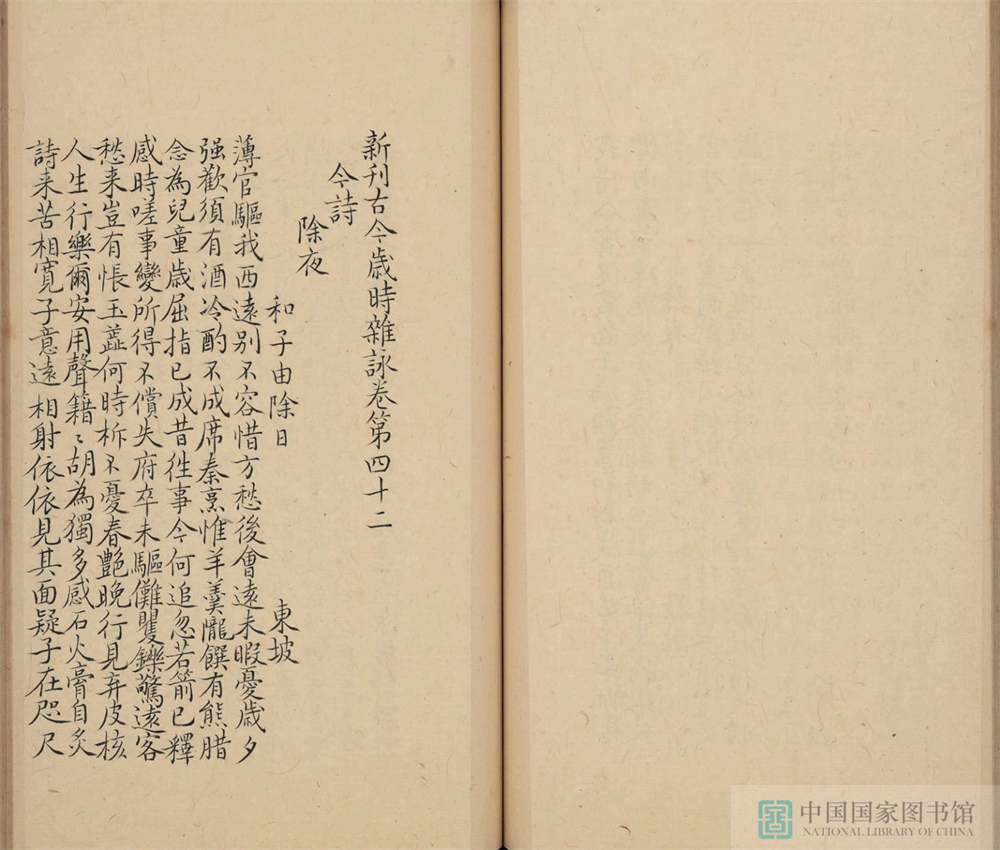 新刊古今歲時雜詠卷第四十二
今詩
除夜
和子由除日 東坡
薄官驅我西遠別不容惜方愁後會遠未暇憂歲夕
强歡須有酒冷酌不成席秦烹惟羊羹隴饌有熊腊
念為兒童歲屈指已成昔徃事今何追忽若箭已釋
感時嗟事變所得不償失府卒未驅儺矍鑠驚遠客
愁来豈有悵玉䔖何時柝不憂春艶晚行見弃皮核
人生行樂爾安用聲籍〻胡為獨多感石火膏自炙
詩来苦相寬子意遠相射依依見其面疑子在咫尺
中国国家图书馆
NATIONAL LIBRARY OF CHINA